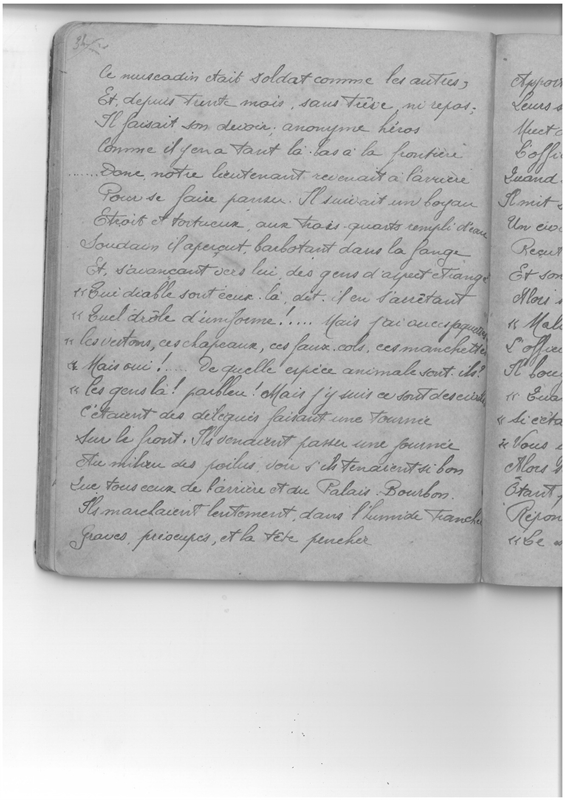 Le muscadin était soldat comme les autres,
Et, depuis trente mois, sans trêve, ni repos;
Il faisait son devoir, anonyme héros
Comme il y en a tant là-bas à la frontière
......Donc, notre lieutenant revenait à l'arrière
Pour se faire panser. Il suivait un boyau
Etroit et tortueux, aux trois-quarts rempli d'eau
Soudain il aperçut, barbotant dans la fange
Et, s'avançant vers lui, des gens d'aspect étrange
"Qui diable sont ceux-là, dit-il en s'arrêtant
"Quel drôle d'uniforme!.... Mais j'ai
"les vestons, ces chapeaux, ces faux-cols, ces manchettes
"Mais oui!.... De quelle espèce animale sont-ils?
"Ces gens là! parbleu! Mais j'y suis ce sont des civils
C'étaient des délégués faisant une tournée
Sur le front. Ils venaient passer une journée
Au milieu des poilus, voir s'ils tenaient si bon
Que tous ceux de l'arrière et du Palais-Bourbon.
Ils marchaient lentement, dans l'humide tranchée
Graves, préocupés, et la tête pencher
Leurs
L'offi
Quand
Il mit
Un
Reçut
Et son
Alors
"
L'offic
Il
"
"Si c'éta
"Vous
Alors
Étant
Répon
"Le